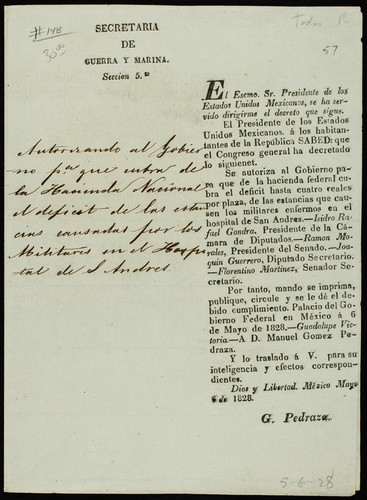 #148
30.00
Todos R
57
SECRETARIA
DE
GUERRA Y MARINA.
Seccion 5.ª
Autorizando al Gobier-
no p.ª que cubra de
la Hacienda Nacional
el deficit de las estan
cias causadas por los
Militares en el Hospi
tal de S Andres.
El Escmo. Sr. Presidente de los
Estados Unidos Mexicanos, se ha ser-
vido dirigirme el decreto que sigue.
El Presidente de los Estados
Unidos Mexicanos, á los habitan-
tantes de la República SABED: que
el Congreso general ha decretado
lo siguienet.
Se autoriza al Gobierno para
pa que de la hacienda federal cu-
bra el deficit hasta cuatro reales
por plaza, de las estancias que cau-
sen los militares enfermos en el
hospital de San Andres.—Isidro Ra-
fael Gondra, Presidente de la Cá-
mara de Diputados.—Ramon Mo-
rales, Presidente del Senado.—Joa-
quin Guerrero, Diputado Secretario.
—Florentino Martinez, Senador Se-
cretario.
Por tanto, mando se imprima,
publique, circule y se le dé el de-
bido cumplimiento. Palacio del Go-
bierno Federal en México á 6
de Mayo de 1828.—Guadalupe Vic-
toria.—A D. Manuel Gomez Pe-
draza.
Y lo traslado á V. para su
inteligencia y efectos correspon-
dientes.
Dios y Libertad. México Mayo
6 de 1828.
G. Pedraza.
5-6-28